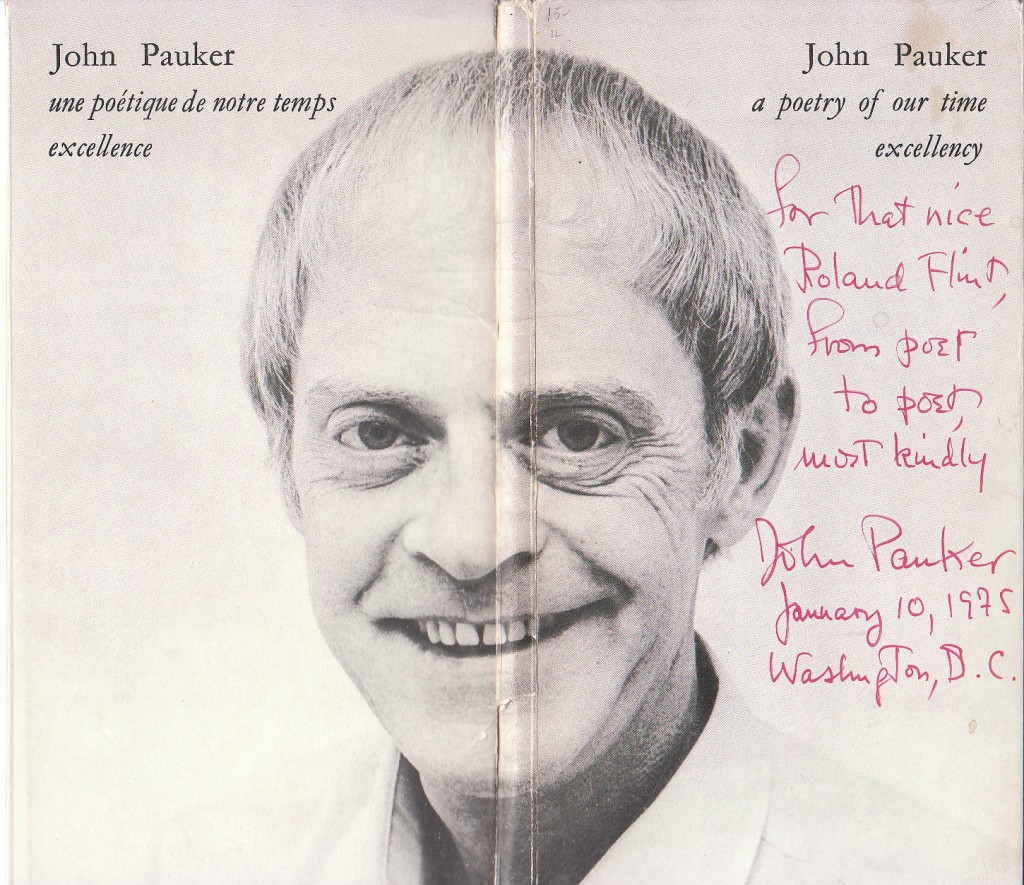 John Pauker
une poétique de notre temps
excellence
15-
John Pauker
a poetry of our time
excellency
for that nice
Roland Flint,
from poet
to poet,
most kindly
John Pauker
January 10, 1975
Washington, D.C.